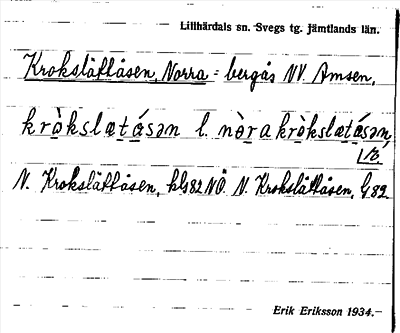 Lillhärdals sn. Svegs tg. Jämtlands län.
Krokslåttåsen, Norra = bergås NV. Amsen.
kròkslætásən l. nòra kròkslætásən
N. Krokslåttåsen, NÖ N. Krokslåttåsen, G 82
Erik Eriksson 1934.-